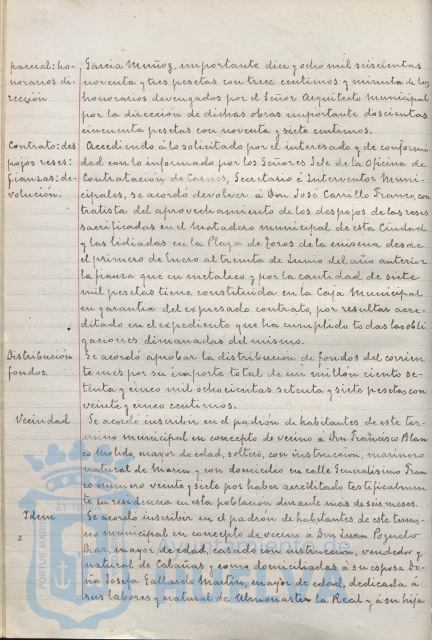 parcial: ho-
norarios di-
rección
García Muñoz, importante diez y ocho mil seiscientas
noventa y tres pesetas con trece centimos y minuta de los
honorarios devengados por el Señor Arquitecto Municipal
por la dirección de dichas obras importante doscientas
cincuenta pesetas con noventa y siete centimos.
Contrato: des
pojos reses:
fianzas: de-
volución.
Accediendo á lo solicitado por el interesado y de conformi
dad con lo informado por los Señores Jefe de la Oficina de
Contratación de Carnes, Secretario é Interventor Muni-
cipales, se acordó devolver á Don José Carrillo Franco, con
tratista del aprovechamiento de los despojos de las reses
sacrificadas en el Matadero municipal de esta Ciudad
y las lidiadas en la Plaza de Toros de la misma desde
el primero de Enero al treinta de Junio del año anterior
la fianza que en metalico y por la cantidad de siete
mil pesetas tiene constituida en la Caja Municipal
en garantia del expresado contrato, por resultar acre-
ditado en el expediente que ha cumplido todas las obli
gaciones dimanadas del mismo.
Distribución
fondos.
Se acordó aprobar la distribución de fondos del corrien
te mes por su importe total de un millón ciento se-
tenta y cinco mil ochocientas setenta y siete pesetas, con
veinte y cinco centimos.
Vecindad
Se acordó inscribir en el padrón de habitantes de este ter-
mino municipal en concepto de vecino á Don Francisco Blan
co mayor de edad, soltero, con instruccion, marinero
natural de Marin y con domicilio en calle Generalisimo Fran
co número veinte y siete por haber acreditado testificalmen
te su residencia en esta población durante más de seis meses.
Idem
Se acordó inscribir en el padrón de habitantes de este termi-
no municipal en concepto de vecino á Don Juan Pozuelo
Diaz, mayor de edad, casado con instruccion, vendedor y
natural de Cabañas y como domiciliadas á su esposa Do-
ña Josefa Gallardo Martin, mayor de edad, dedicada á
sus labores y natural de Almonaster la Real y á su hija